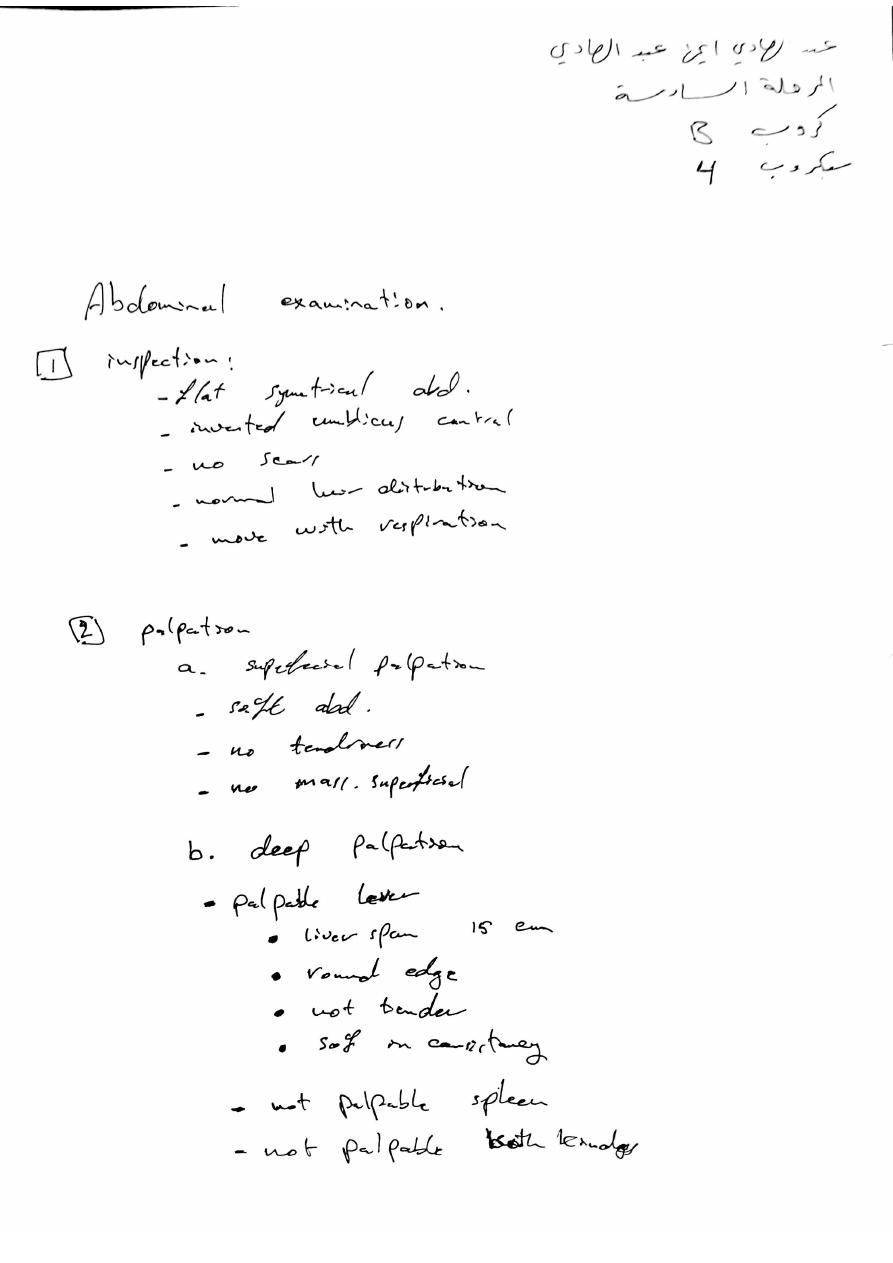 عبد الهادي ايمن عبد الهادي
المرحلة السادسة
كروب B
سبكروب 4
Abdominal examination.
1 inspection:
- flat symetrical abd.
- inverted umblicus central
- no scars
- normal hair distribution
- move with respiration
2 palpation
a. superfecial palpation
- soft abd.
- no tenderness
- no mass. superficial
b. deep palpation
- palpable liver
• liver span 15 cm
• round edge
• not tender
• soft in consistancy
- not palpable spleen
- not palpable both